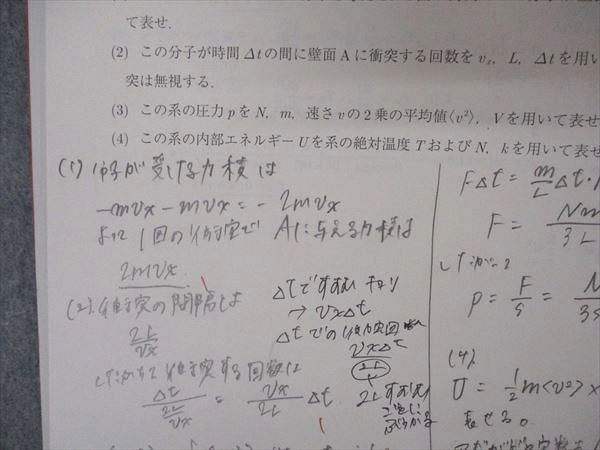 て表せ.
(2) この分子が時間 Δt の間に壁面 A に衝突する回数を vₓ, L, Δt を用い
突は無視する.
(3) この系の圧力 p を N, m, 速さ v の2乗の平均値⟨v²⟩, V を用いて表せ
(4) この系の内部エネルギー U を系の絶対温度 T および N, k を用いて表せ
(1) 分子が受ける力積は
-mvx - mvx = -2mvx
よって 1回の衝突で Aに与える力積は
2mvx
(2) 衝突の間隔は
2L/vx
したがって衝突する回数は
Δt/(2L/vx) = vx/2L Δt
Δtですすむキョリ
→ vxΔt
Δtでの衝突回
vxΔt/2L
2Lすすむ
ごとに
ぶつかる
FΔt = m/L Δt
F = Nm/3L
したがって
p = F/S =
(4)
U = 1/2 m<v²> ×
表せる。